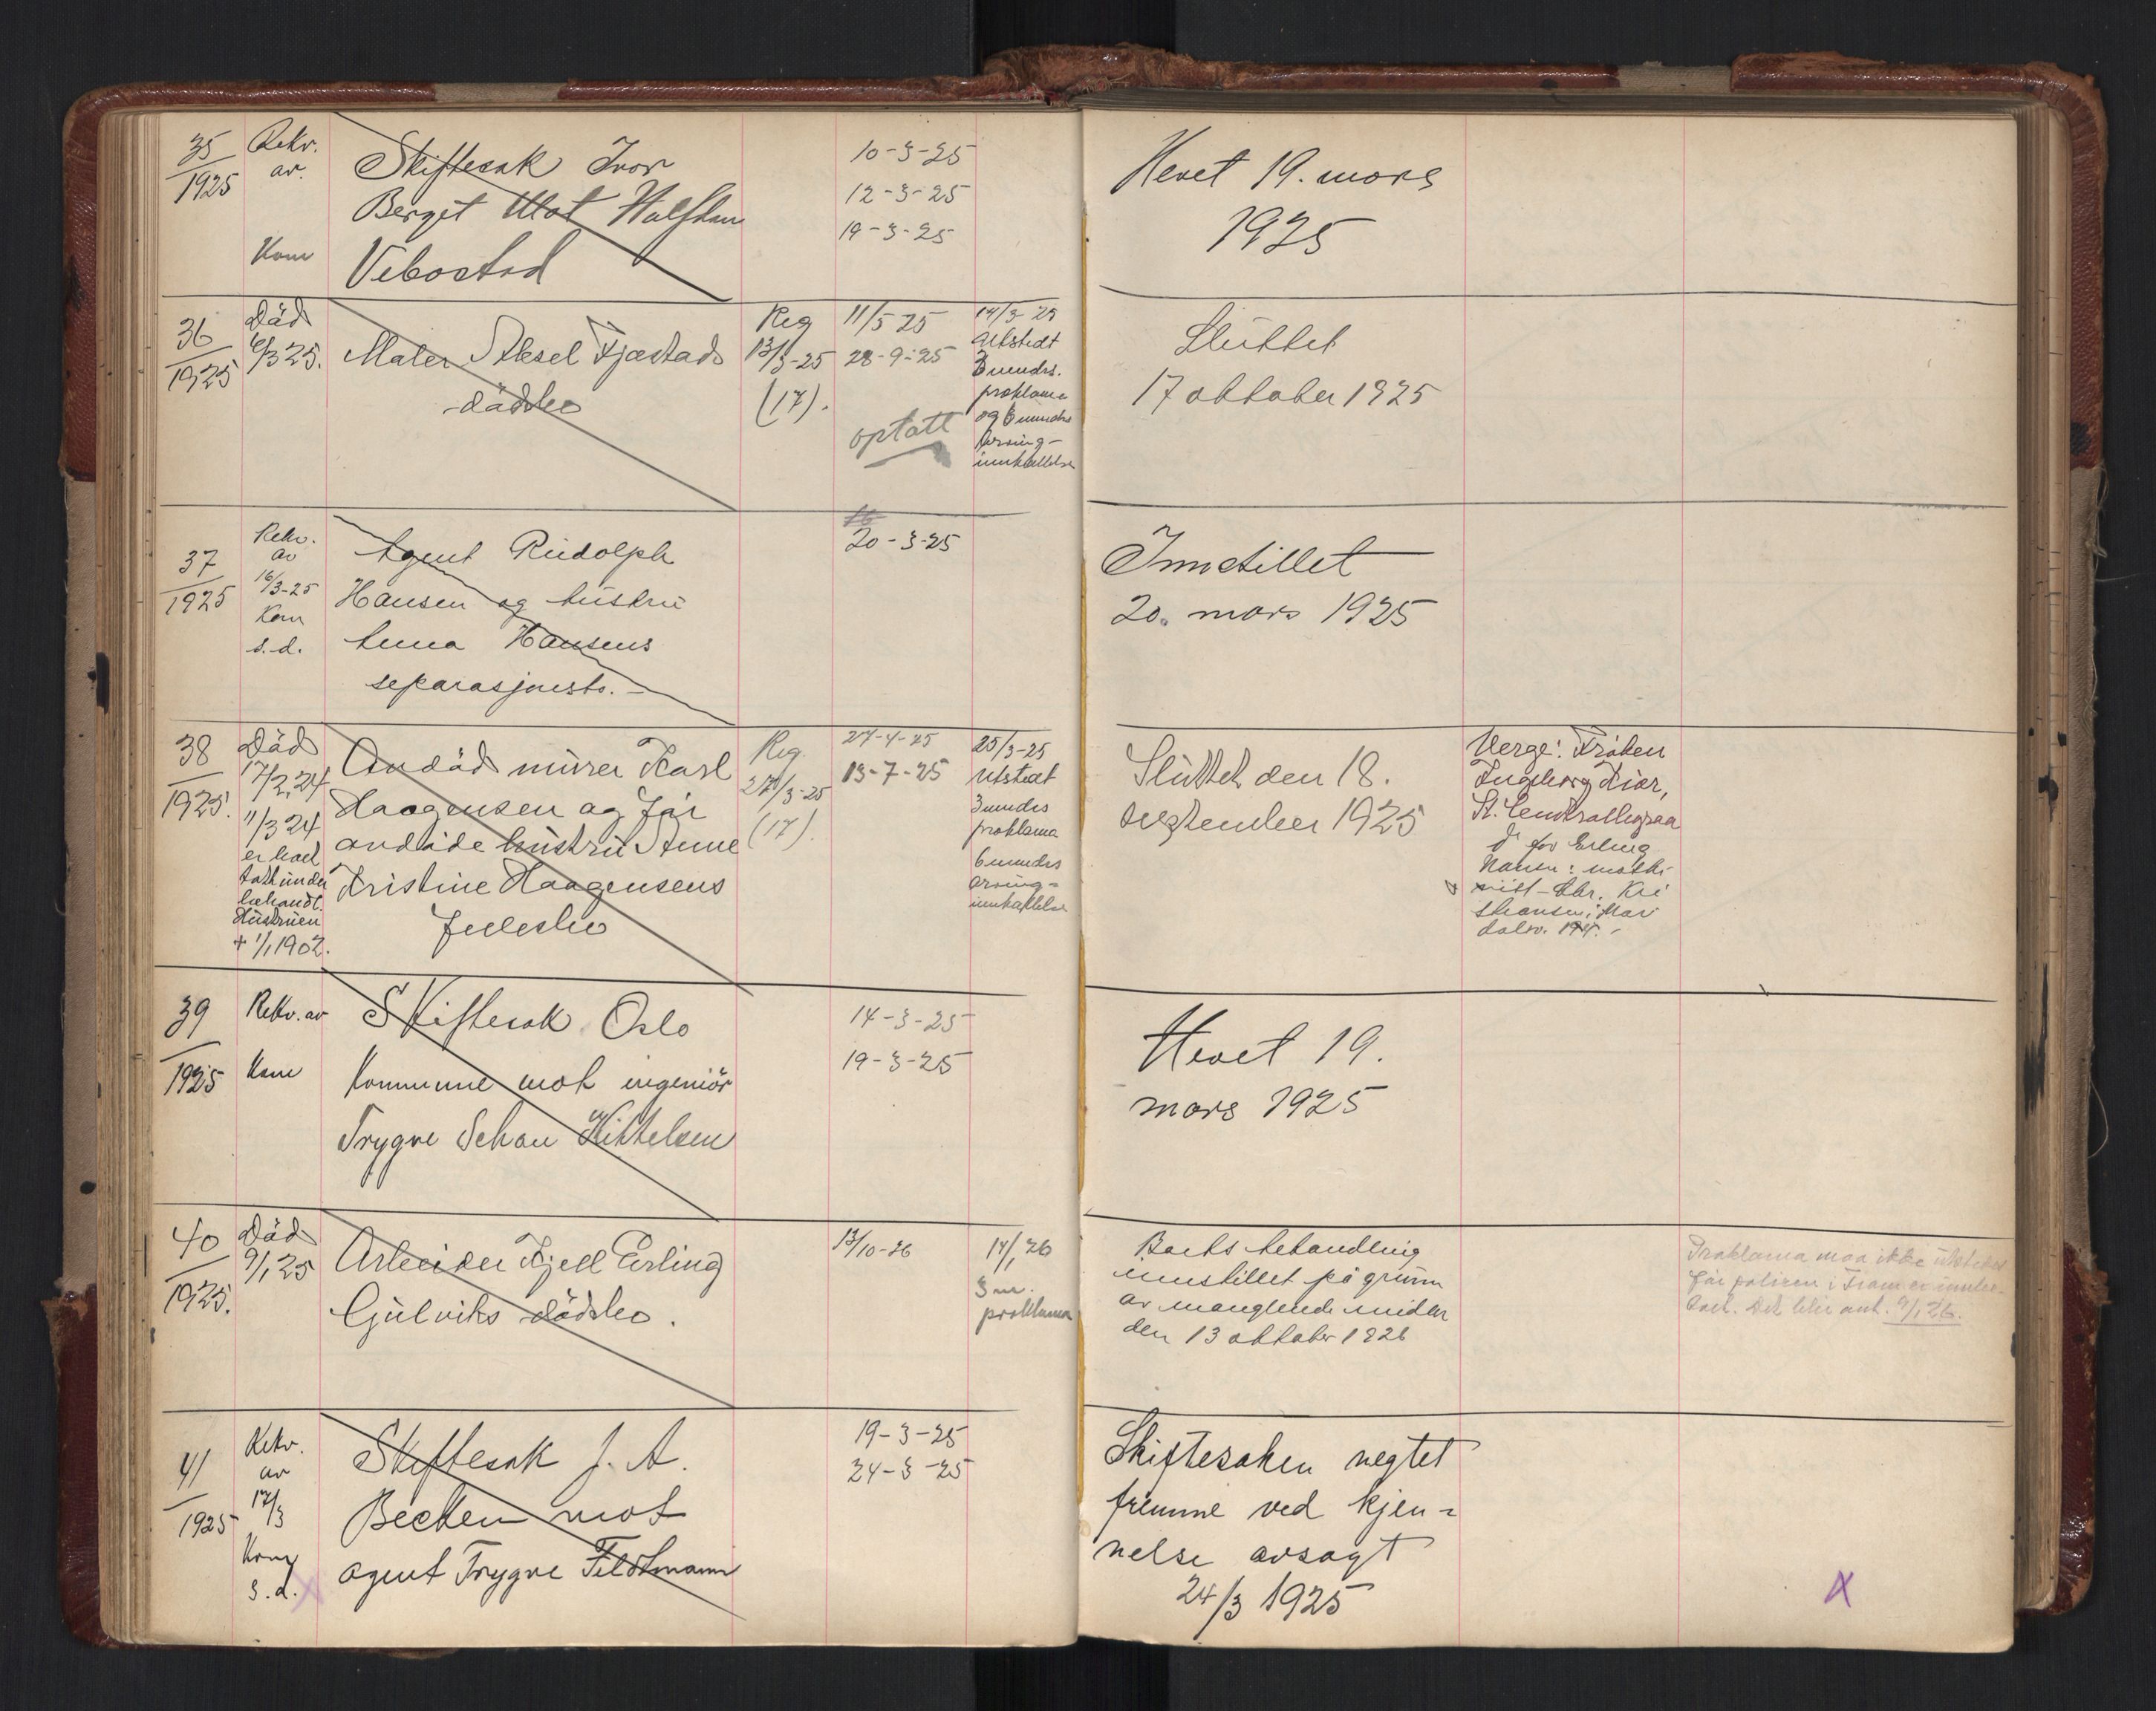 35
1925
Rekv.
av.
Kom
Skiftesak Ivor
Berget Mot Halfdan
Vebostad
10-3-25
12-3-25
19-3-25
Hevet 19. mars
1925
36
1925
Död
6/3 25.
Maler Aksel Fjæstads
dödsbo
Reg
13/3-25
(17).
11/5 25
28-9-25
optatt
14/3-25
Utstedt
3 mndrs.
proklama
og 6 mndrs
arving-
innkallelse
Sluttet
17 oktober 1925
37
1925
Rekv.
av
16/3-25
Kom
s.d.
Agent Rudolph
Hansen og hustru
Anna Hansens
separasjonsbo.-
20-3-25
Innstillet
20. mars 1925
38
1925.
Död
17/2.24
11/3 24
er boet
tatt under
behandl.
Hustruen
+ 1/1 1902.
Avdöd murer Karl
Haagensen og för
avdöde hustru Anne
Kristine Haagensens
fellesbo
Reg.
27/3-25
(17).
27-4-25
13-7-25
25/3-25
Utstedt
3 mndrs
proklama
6 mndrs
arving-
innkallelse
Sluttet den 18.
september 1925
Verge: Fröken
Ingeborg Kiør,
for Erling
Hansen:
39
1925
Rekv. av
Kom
Skiftesak Oslo
Kommune mot ingeniör
Trygve Schou Kittelsen
14-3-25
19-3-25
Hevet 19.
mars 1925
40
1925.
Död
9/1 25
Arbeider Kjell Erling
Gjulviks dödsbo.
13/10-26
14/1 26
3 m.
proklama
Boets behandling
innstillet på grunn
av manglende midler
den 13 oktober 1926
Proklama maa ikke utstedes
för politien i Fram er
9/1 26.
41
1925
Rekv.
av
17/3
Kom
s.d.
Skiftesak J. A.
Becken mot
agent Trygve Feldtmann
19-3-25
24-3-25
Skiftesaken negtet
fremme ved kjen-
nelse avsagt
24/3 1925
X